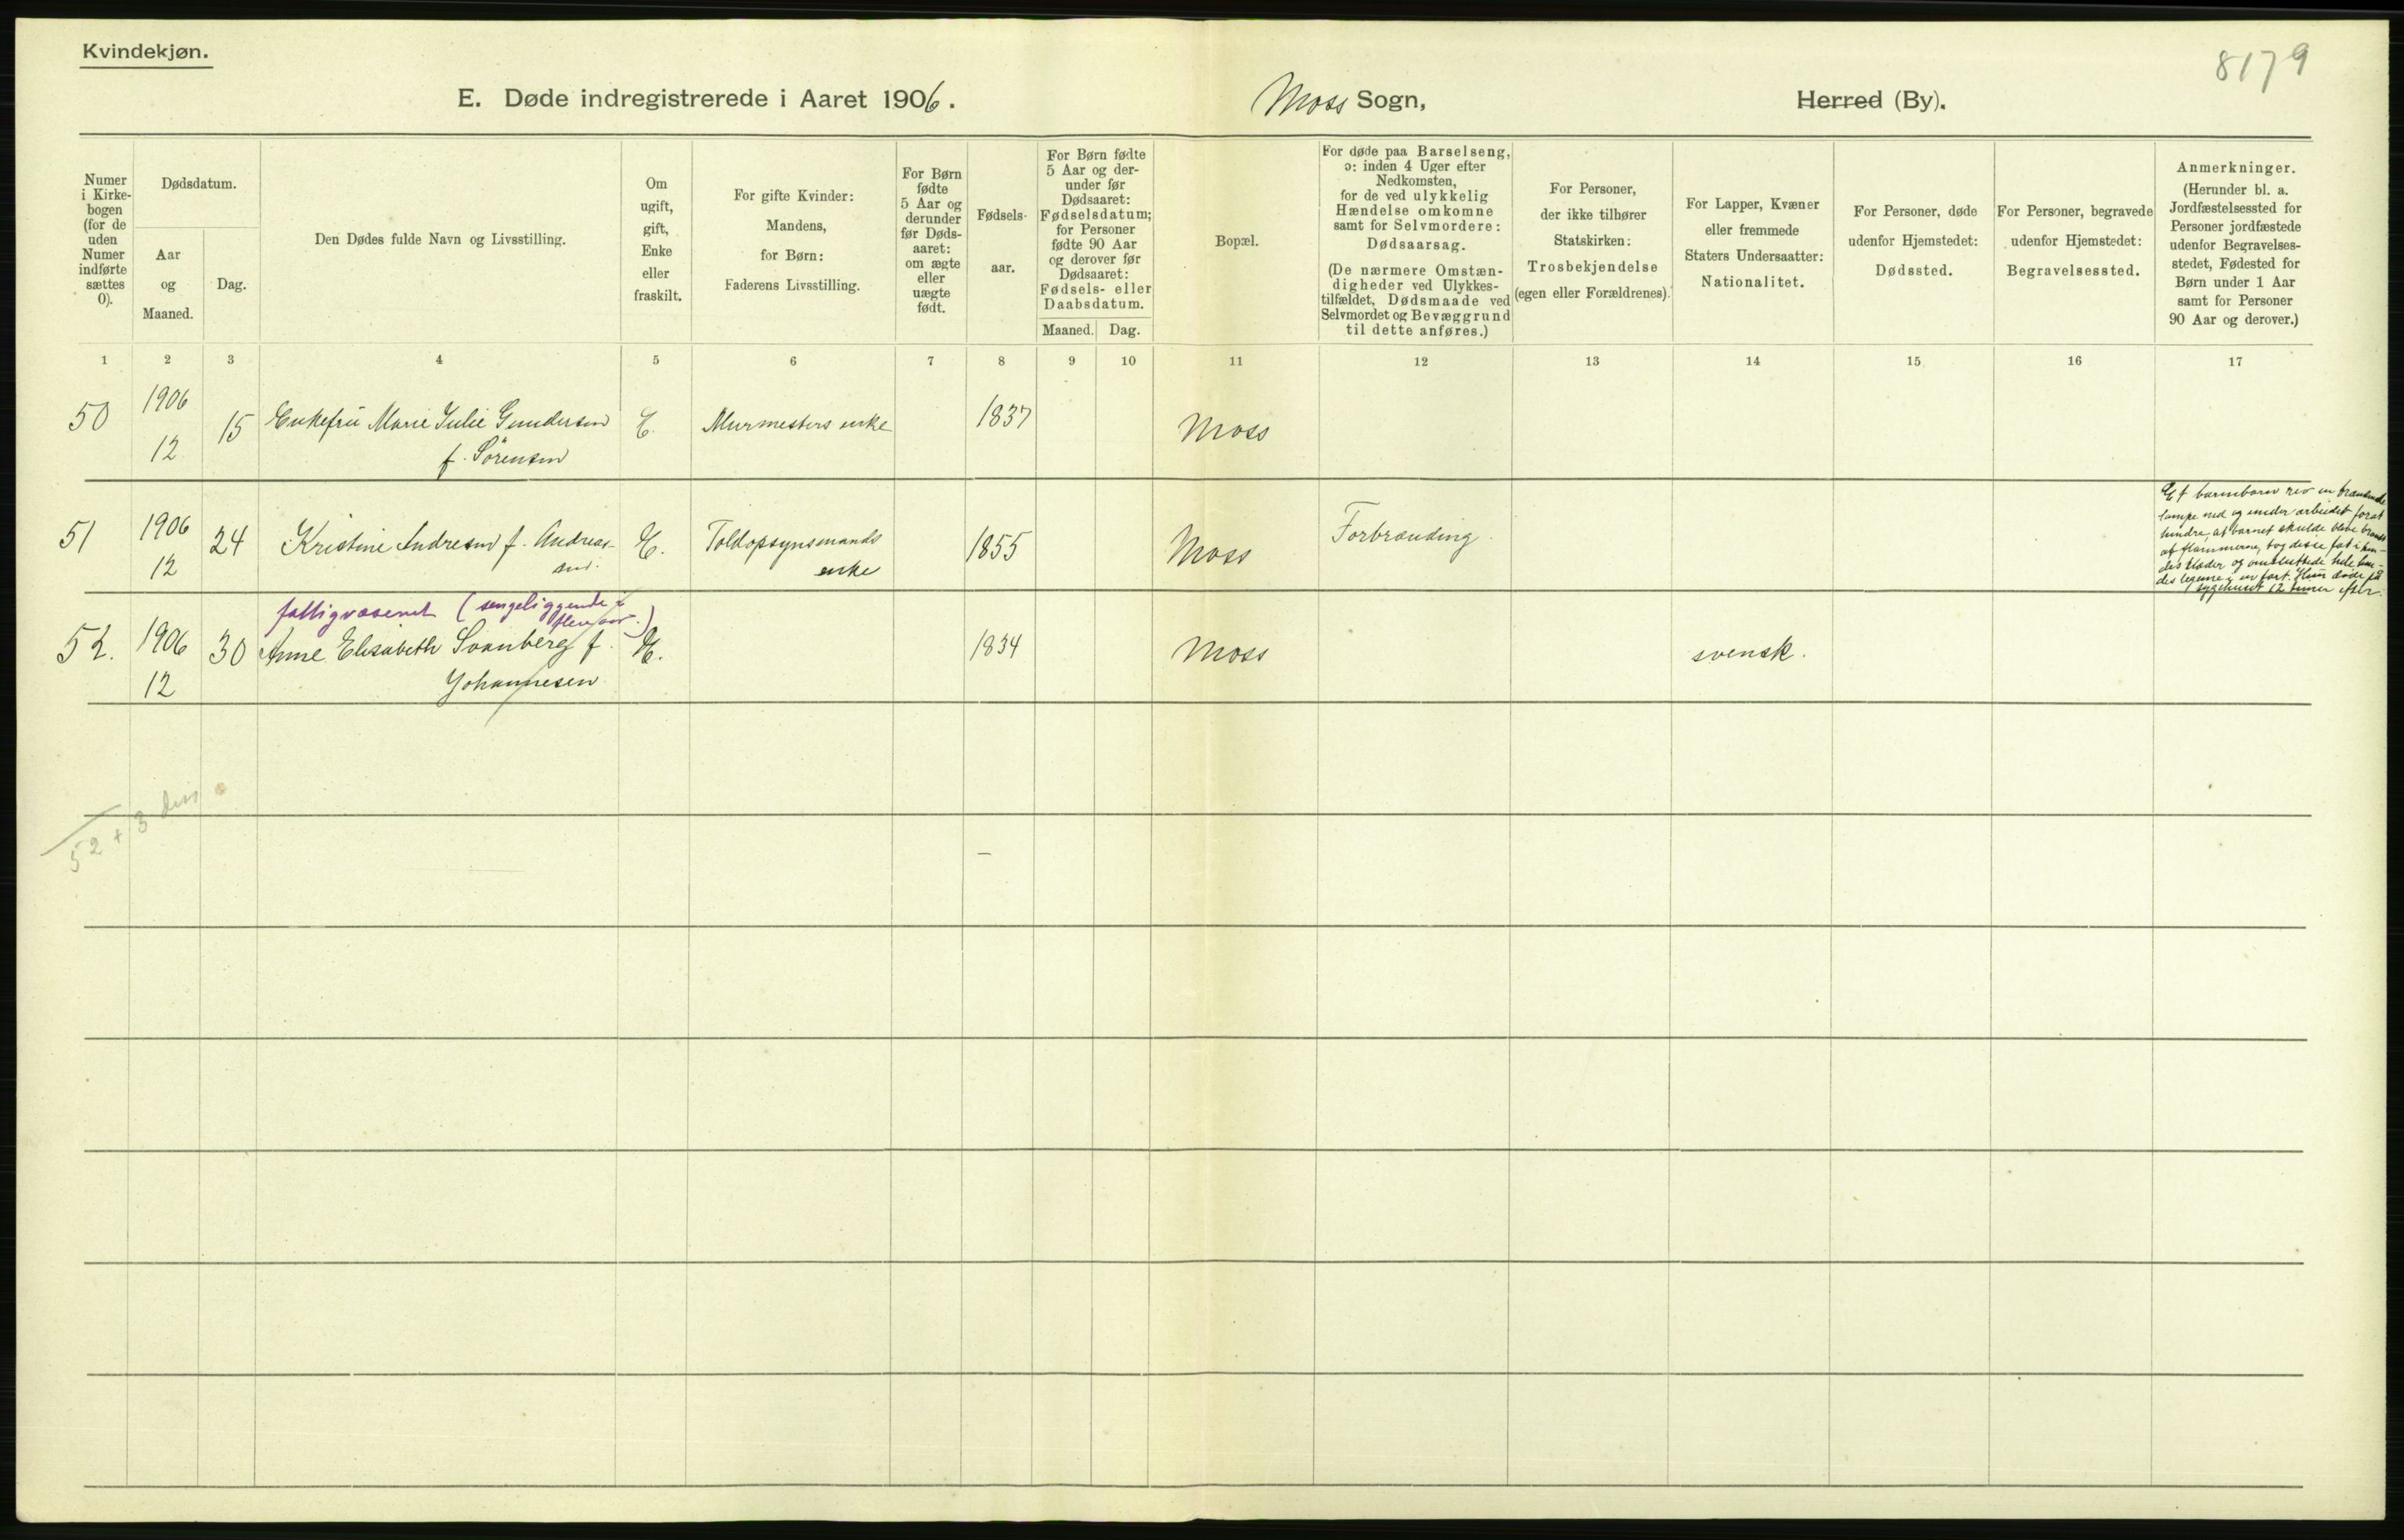 Kvindekjøn.
8179
E. Døde indregistrerede i Aaret 1906.
Moss Sogn,
Herred (By).
Numer
i Kirke-
bogen
(for de
uden
Numer
indførte
sættes
0).
Dødsdatum.
Aar
og
Maaned.
Dag.
Den Dødes fulde Navn og Livsstilling.
Om
ugift,
gift,
Enke
eller
fraskilt.
For gifte Kvinder:
Mandens,
for Børn:
Faderens Livsstilling.
For Børn
fødte
5 Aar og
derunder
før Døds-
aaret:
om ægte
eller
uægte
født.
Fødsels-
aar.
For Børn fødte
5 Aar og der-
under før
Dødsaaret:
Fødselsdatum;
for Personer
fødte 90 Aar
og derover før
Dødsaaret:
Fødsels- eller
Daabsdatum.
Maaned. Dag.
Bopæl.
For døde paa Barselseng,
ɔ: inden 4 Uger efter
Nedkomsten,
for de ved ulykkelig
Hændelse omkomne
samt for Selvmordere:
Dødsaarsag.
(De nærmere Omstæn-
digheder ved Ulykkes-
tilfældet, Dødsmaade ved
Selvmordet og Bevæggrund
til dette anføres.)
For Personer,
der ikke tilhører
Statskirken:
Trosbekjendelse
(egen eller Forældrenes).
For Lapper, Kvæner
eller fremmede
Staters Undersaatter:
Nationalitet.
For Personer, døde
udenfor Hjemstedet:
Dødssted.
For Personer, begravede
udenfor Hjemstedet:
Begravelsessted.
Anmerkninger.
(Herunder bl. a.
Jordfæstelsessted for
Personer jordfæstede
udenfor Begravelses-
stedet, Fødested for
Børn under 1 Aar
samt for Personer
90 Aar og derover.)
1 2 3 4 5 6 7 8 9 10 11 12 13 14 15 16 17
50 1906 15 Enkefru Marie Julie Gundersen E. Murmesters enke 1837 Moss
12 f. Sörensen
51 1906 24 Kristine Andresen f. Andreas- E. Toldopsynsmands 1855 Moss Forbrænding.
12 sen. enke
Et barnebarn rev en brændende
lampe ned og under arbeidet forat
hindre, at barnet skulde blive brændt
af flammerne, tog disse fat i hen-
des klæder og omsluttede hele hen-
des legeme i en fart. Hun døde på
sygehuset 12 timer efter.
fattigvæsenet (sengeliggende i
flere aar.)
52. 1906 30 Anne Elisabeth Svanberg f. E. 1834 Moss svensk.
12 Johannesen
52 + 3